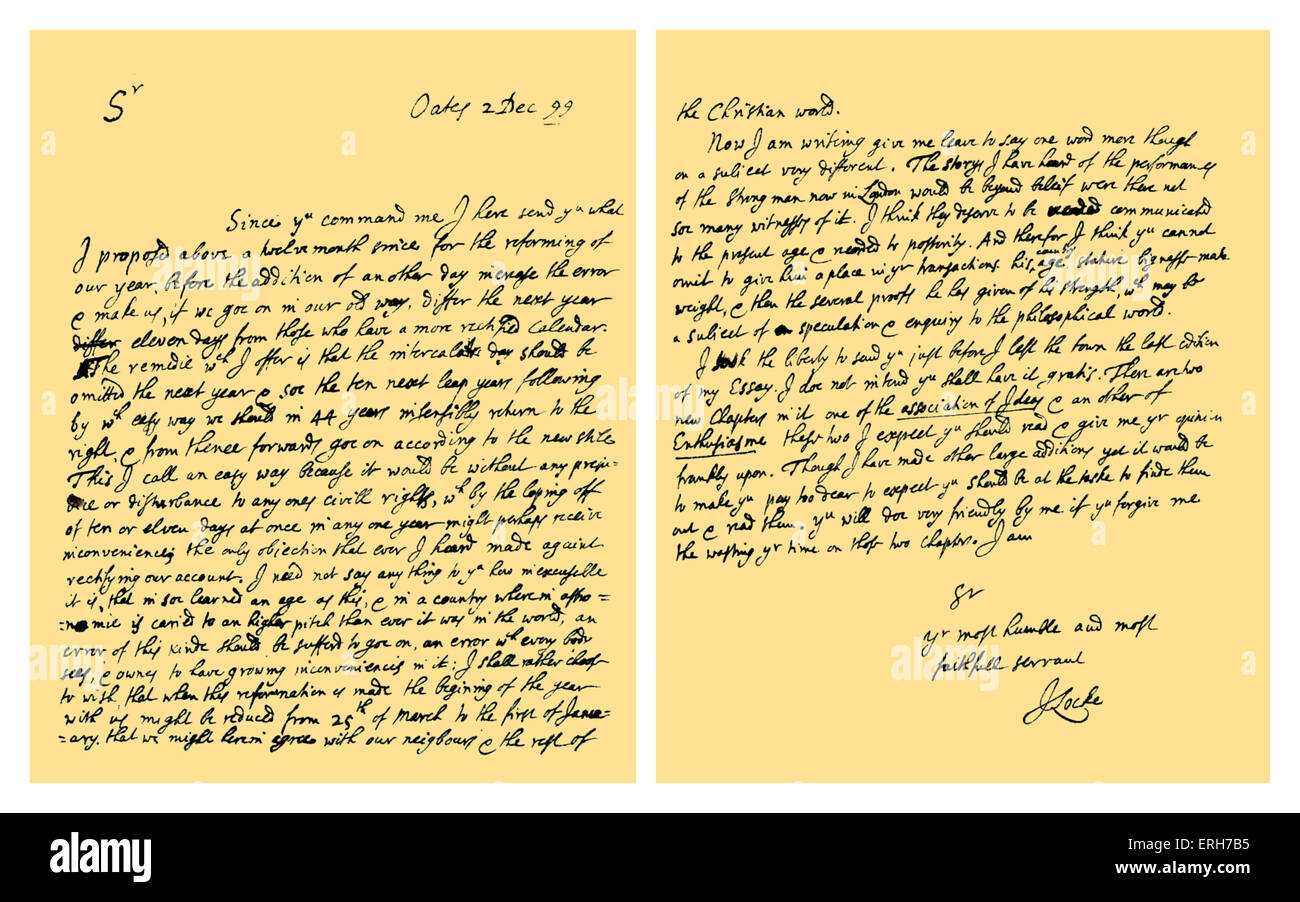 Sr
Oates 2 Dec 99
Since yu command me I here send yu what
I proposed above a twelve month since for the reforming of
our year, before the addition of another day increase the error
& make us, if we goe on in our old way, differ the next year
differ eleven days from those who have a more rectified Calendar.
The remedie wch I offer is that the intercalare day should be
omitted the next year & soe the ten next leap years following
by wch easy way we should in 44 years insensibly return to the
right, & from thence forwards goe on according to the new stile
This I call an easy way because it would be without any preju-
dice or disturbance to any ones civill rights, wch by the loping off
of ten or eleven days at once in any one year might perhaps receive
inconvenience, the only objection that ever I heard made against
rectifying our account. I need not say any thing to yu how inexcusible
it is, that in soe learned an age as this, & in a country wherein astro=
=nomie is caried to an higher pitch than ever it was in the world, an
error of this kinde should be sufferd to goe on, an error wch every body
sees, & ownes to have growing inconveniencies in it: I shall rather choose
to wish, that when this reformation is made the begining of the year
with us might be reduced from 25th of March to the first of Janu=
=ary. that we might herein agree with our neighbours & the rest of
the Christian world.
Now I am writing give me leave to say one word more though
on a subiect very different. The storys I have heard of the performances
of the strong man now in London would be beyond beleif were there not
soe many witnesses of it. I think they deserve to be communicated
to the present age & recorded to posterity. And therefor I think yu cannot
omit to give him a place in yr transactions his country age stature bigness make
weight, & then the several proofs he has given of his strength, wch may be
a subiect of speculation & enquiry to the philosophical world.
I took the liberty to send yu just before I left the town the last edition
of my Essay. I doe not intend yu shall have it gratis. There are two
new Chapters in it one of the association of Ideas & an other of
Enthusiasme these two I expect yu should read & give me yr opinion
frankly upon. Though I have made other large additions yet it would be
to make yu pay too dear to expect yu should be at the taske to finde them
out & read them, yu will doe very friendly by me if yu forgive me
the wasting yr time on those two chapters. I am
Sr
yr most humble and most
faithfull servant
J Locke
alamy
ERH7B5
www.alamy.com